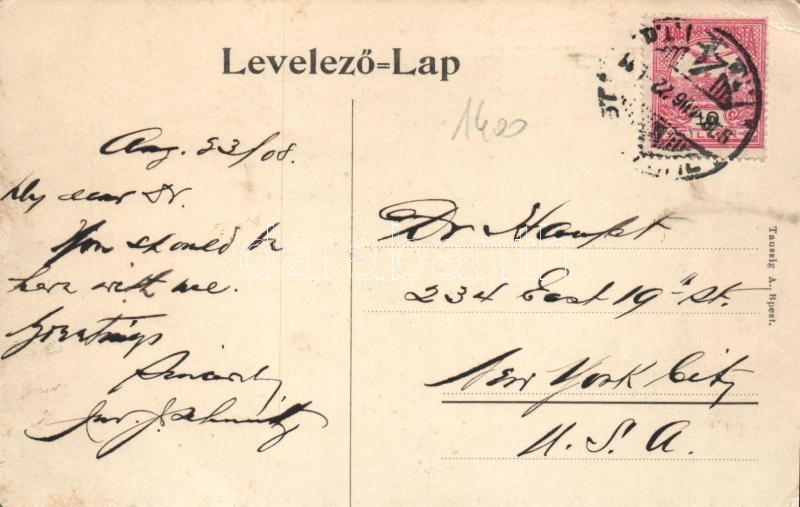 Levelező=Lap
1400
Aug. 23/08.
My dear Dr.
You should be
here with me.
Greetings
Sincerely
J. Schmitz
Dr. Haupt
234 East 19th St.
New York City
U. S. A.
Taussig A., Bpest.
darabanth